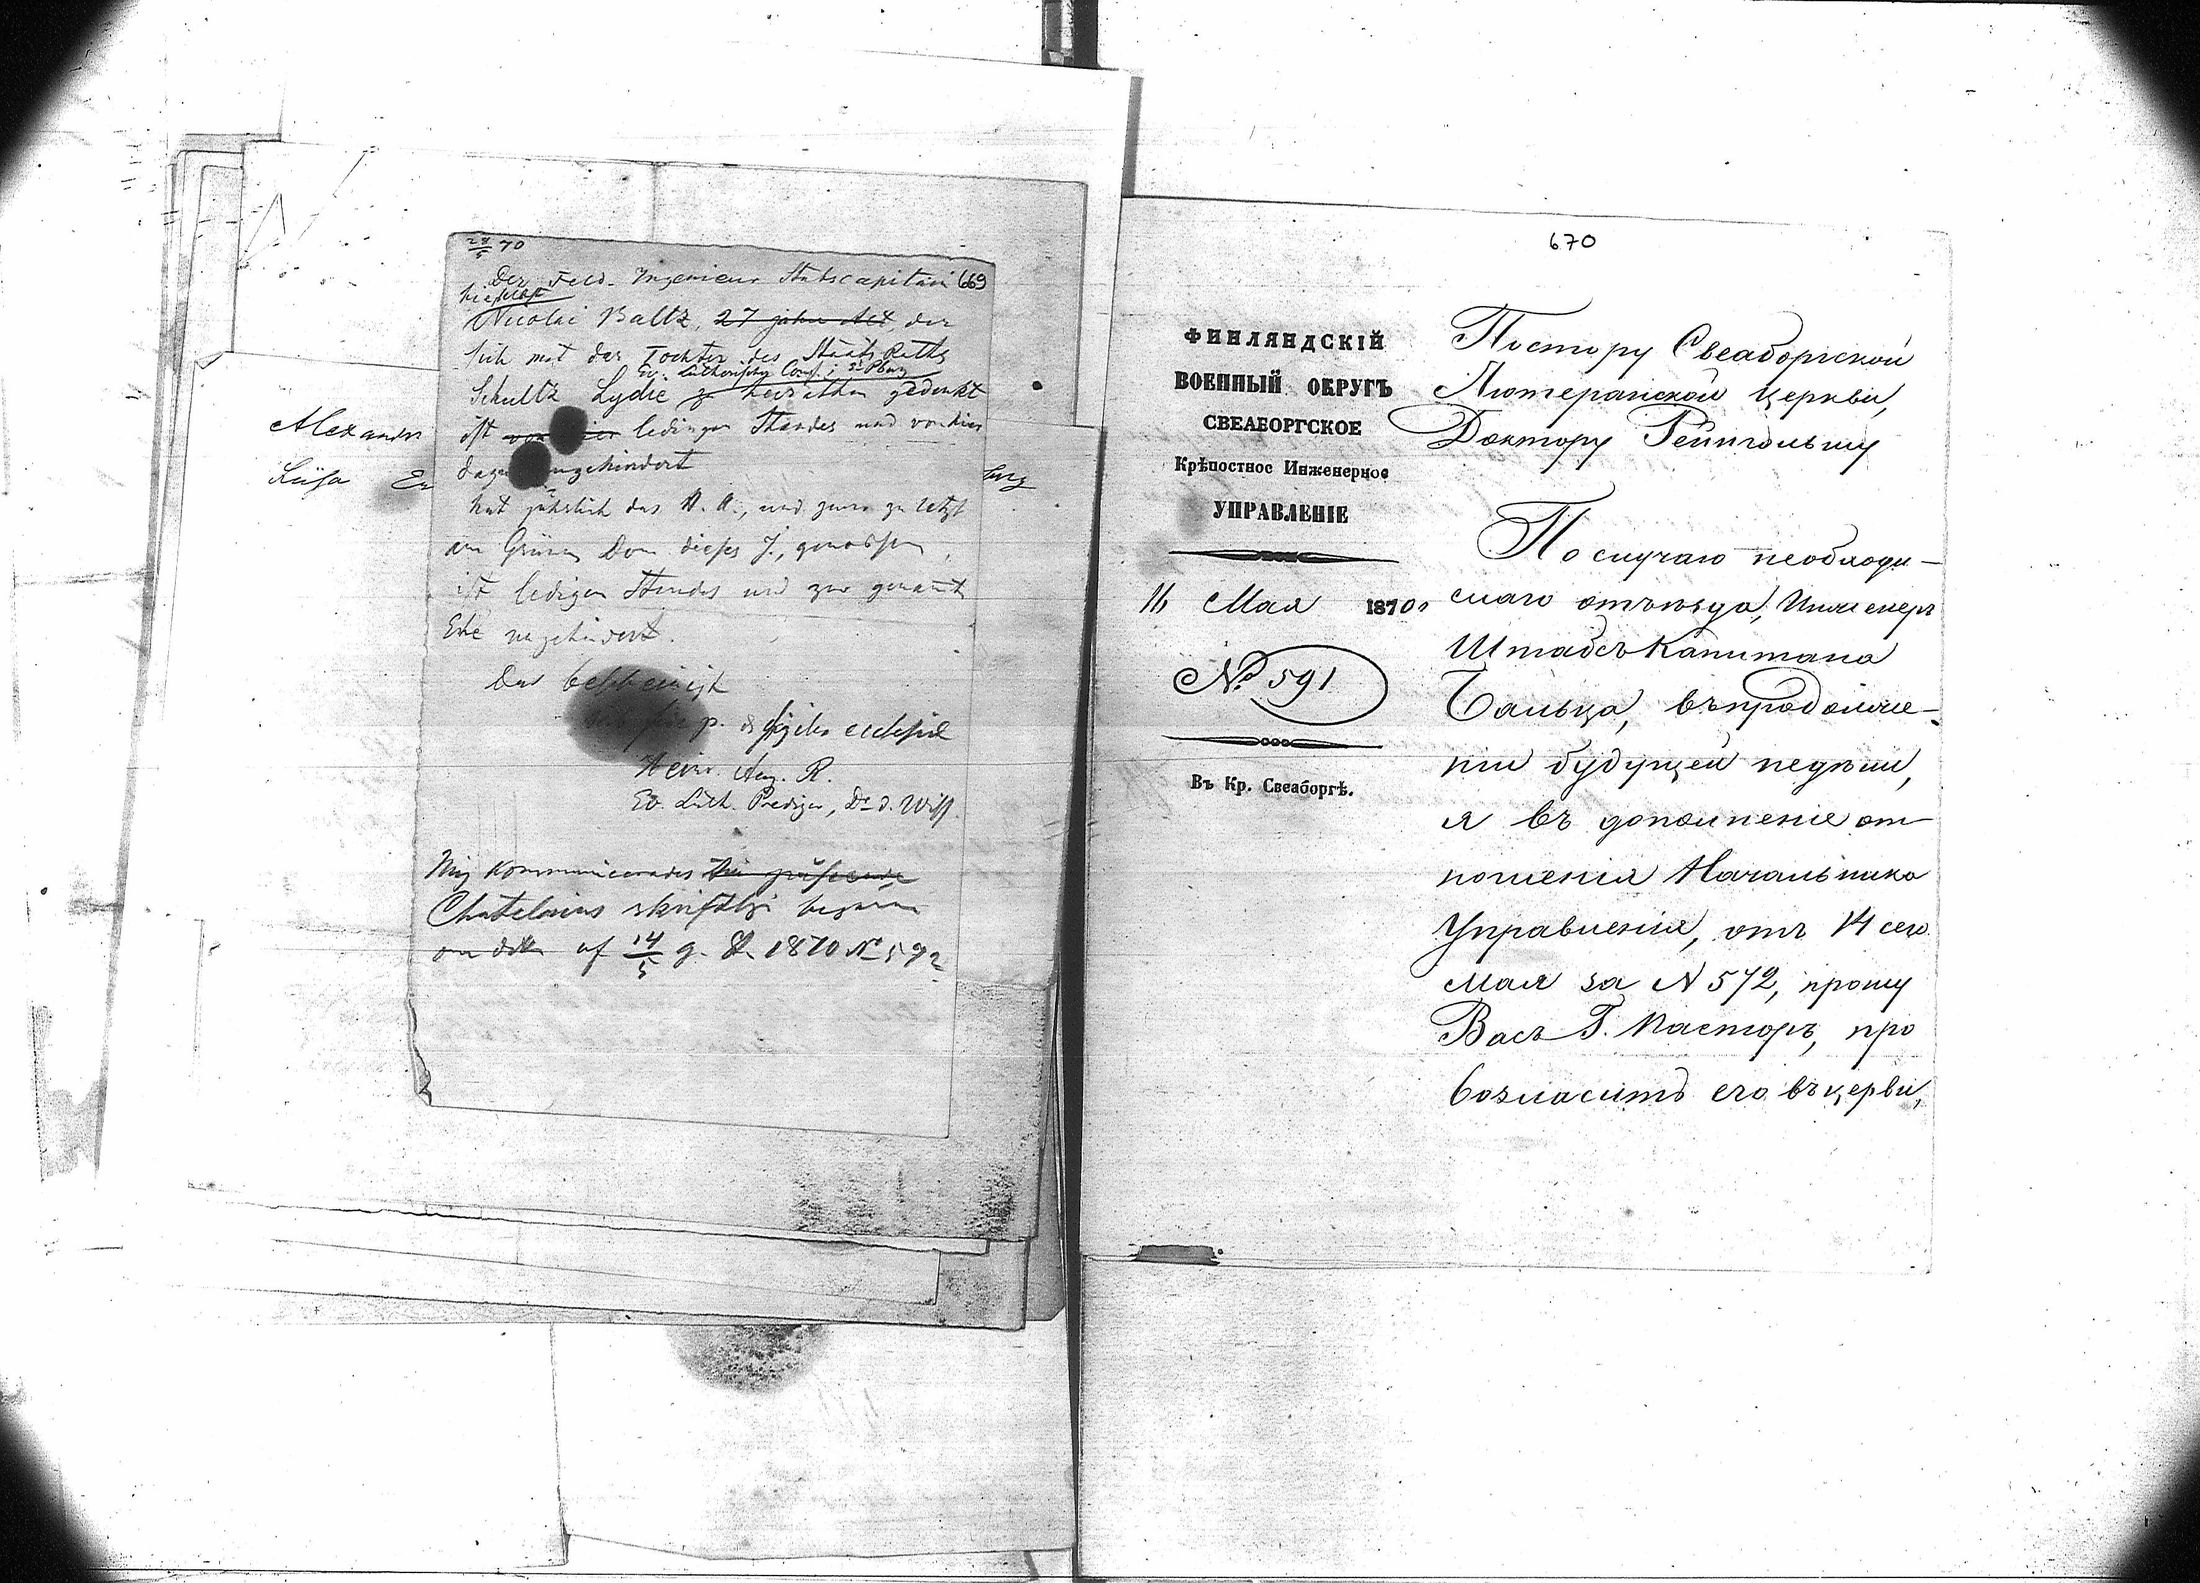 28/5 70
669
Der Feld-Ingenieur Stabscapitain
Nicolai Baltz, 27 jahre Alt, der
sich mit der Tochter des Staats Raths
Ev. Luth
Schultz Lydie zu heirathen gedenkt
ist ledigen Standes und von hier
ungehindert
hat jährlich das H. A., und zwar zu letzt
am Grünen Don dieses J., genossen,
ist ledigen Standes und zur genannt
Ehe ungehindert.
Das bescheinigt
p. & ecclesiæ
Heinr. Aug. R.
Ev. Luth. Prediger, Dr. d. Wiss.
Mig kommunicerades
Chatelains skriftligt
af 14/5 g. St. 1870 No 592
Alexandr
670
ФИНЛЯНДСКІЙ
ВОЕННЫЙ ОКРУГЪ
СВЕАБОРГСКОЕ
Крѣпостное Инженерное
УПРАВЛЕНІЕ
Мая 1870 г
№ 591
Въ Кр. Свеаборгѣ.
Пастору Свеаборгской
Лютеранской церкви,
Доктору Рейнгольму
По случаю необходи-
маго отъѣзда, Инженеръ
Штабсъ Капитана
Бальца, въ продолже-
ніи будущей недѣли,
я въ дополненіе от-
ношенія Начальника
Управленія, отъ 14 сего
Мая за N 572, прошу
Васъ Г. Пасторъ, про
возгласить его въ церви,